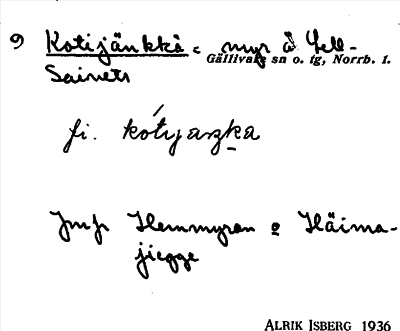 9 Kotijänkkä = myr å Sell-
Gällivare sn o. tg, Norrb. l.
Sainets
fi. kòtijaŋka
Jmfr Hemmyran o Häima-
jiegge
ALRIK ISBERG 1936